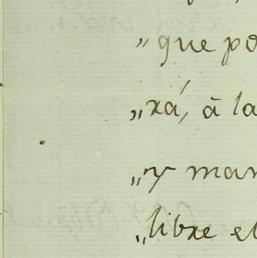 „que po
„xá, á la
„y man
„libre el